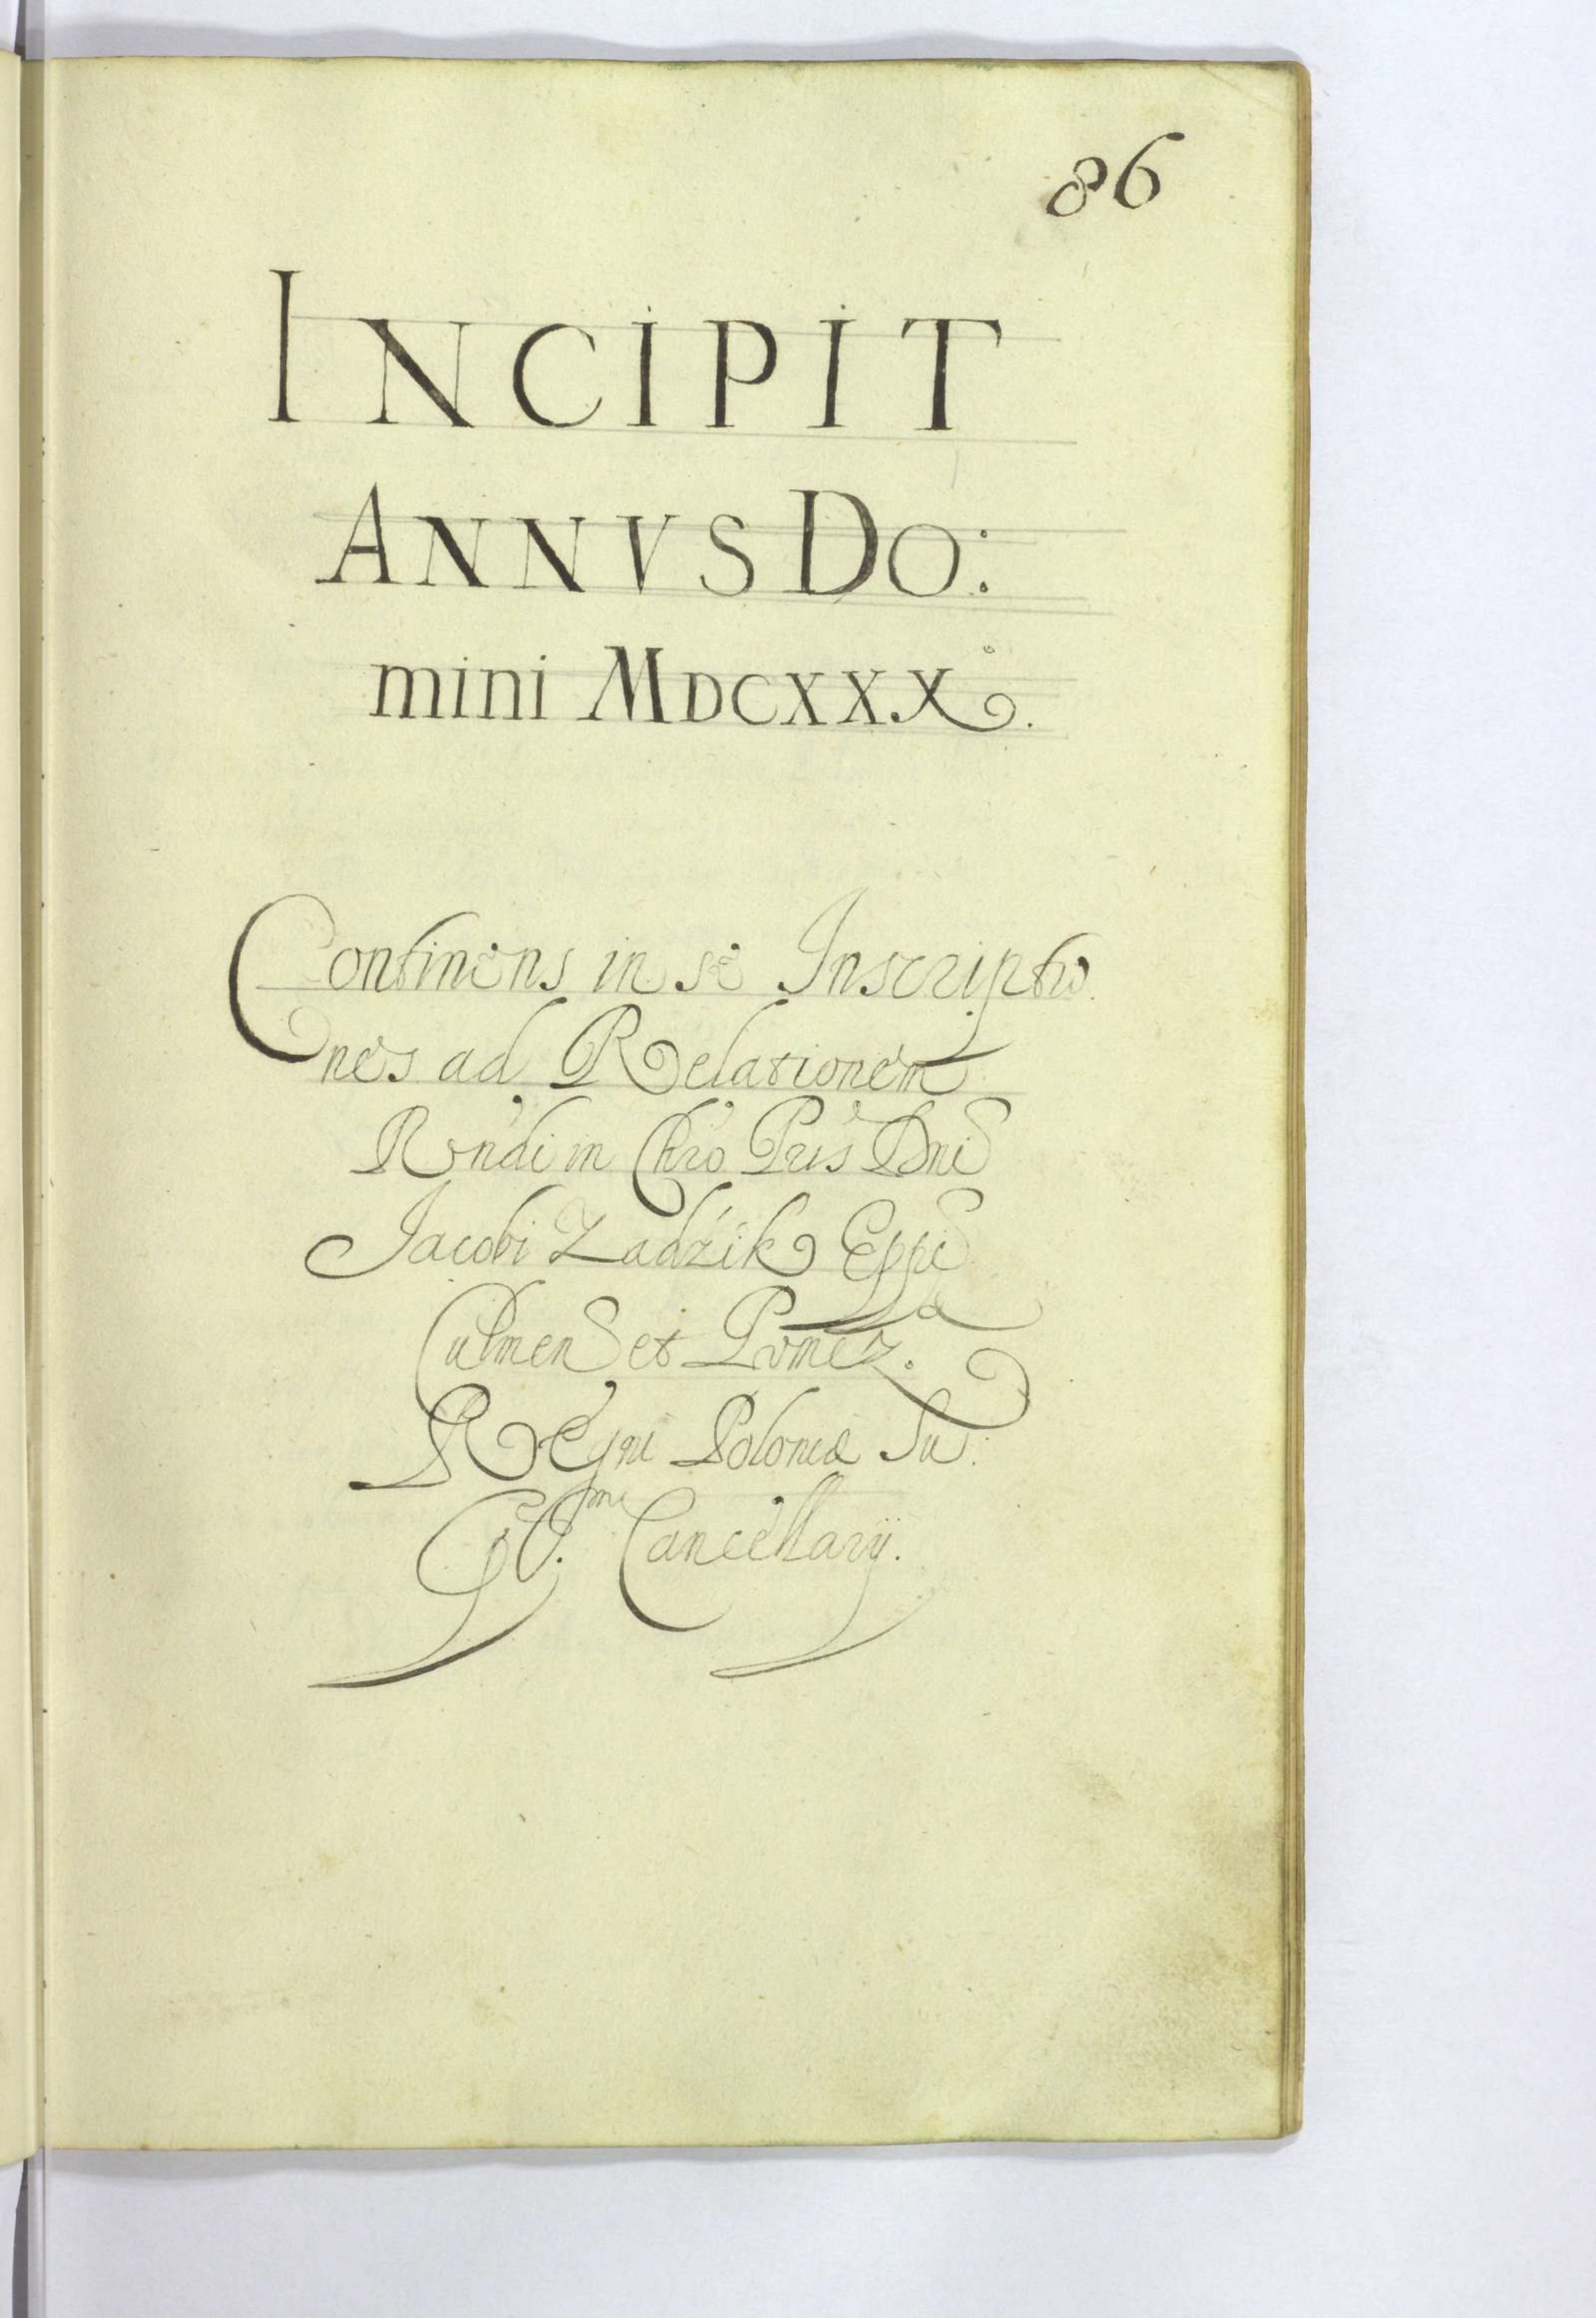 86
INCIPIT
ANNVS DO:
mini MDCXXX.
Continens in se Inscriptio
nes ad Relationem
Rndi in Chro Pris Dni
Jacobi Zadzik Eppi
Culmen et Pomez.
Regni Poloniæ Su:
Cancellarij.